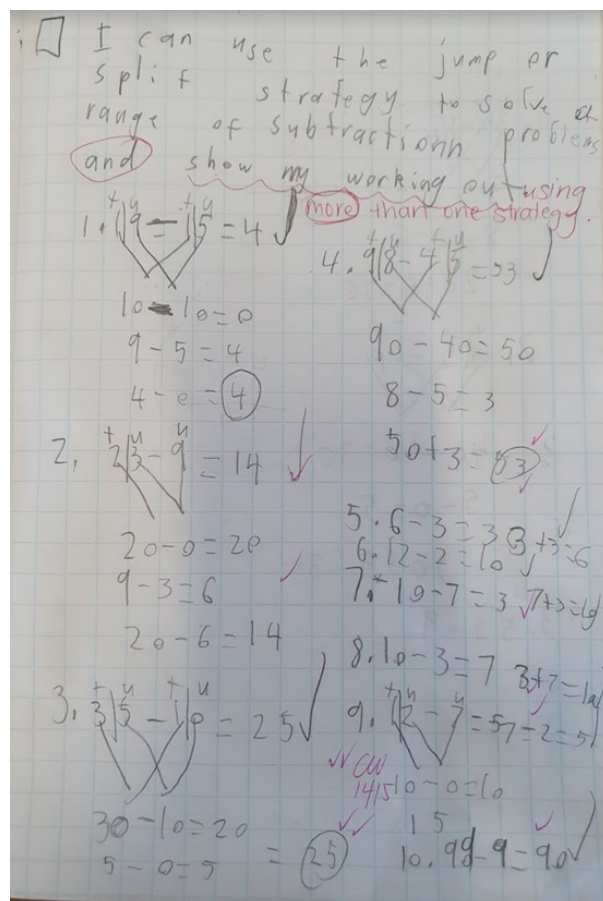 I can use the jump or
split strategy to solve a
range of subtractionn problems
and show my working out using
more than one strategy.
t u t u
1. 19 - 15 = 4
10 - 10 = 0
9 - 5 = 4
4 - 0 = 4
t u u
2. 23 - 9 = 14
20 - 0 = 20
9 - 3 = 6
20 - 6 = 14
t u t u
3. 35 - 10 = 25
30 - 10 = 20
5 - 0 = 5 = 25
t u t u
4. 98 - 45 = 53
90 - 40 = 50
8 - 5 = 3
50 + 3 = 53
5. 6 - 3 = 3 3 + 3 = 6
6. 12 - 2 = 10
7. 10 - 7 = 3 7 + 3 = 10
8. 10 - 3 = 7 3 + 7 = 10
t u u
9. 12 - 7 = 5 7 - 2 = 5
CW
14/15
10 - 0 = 10
1 5
10. 99 - 9 = 90